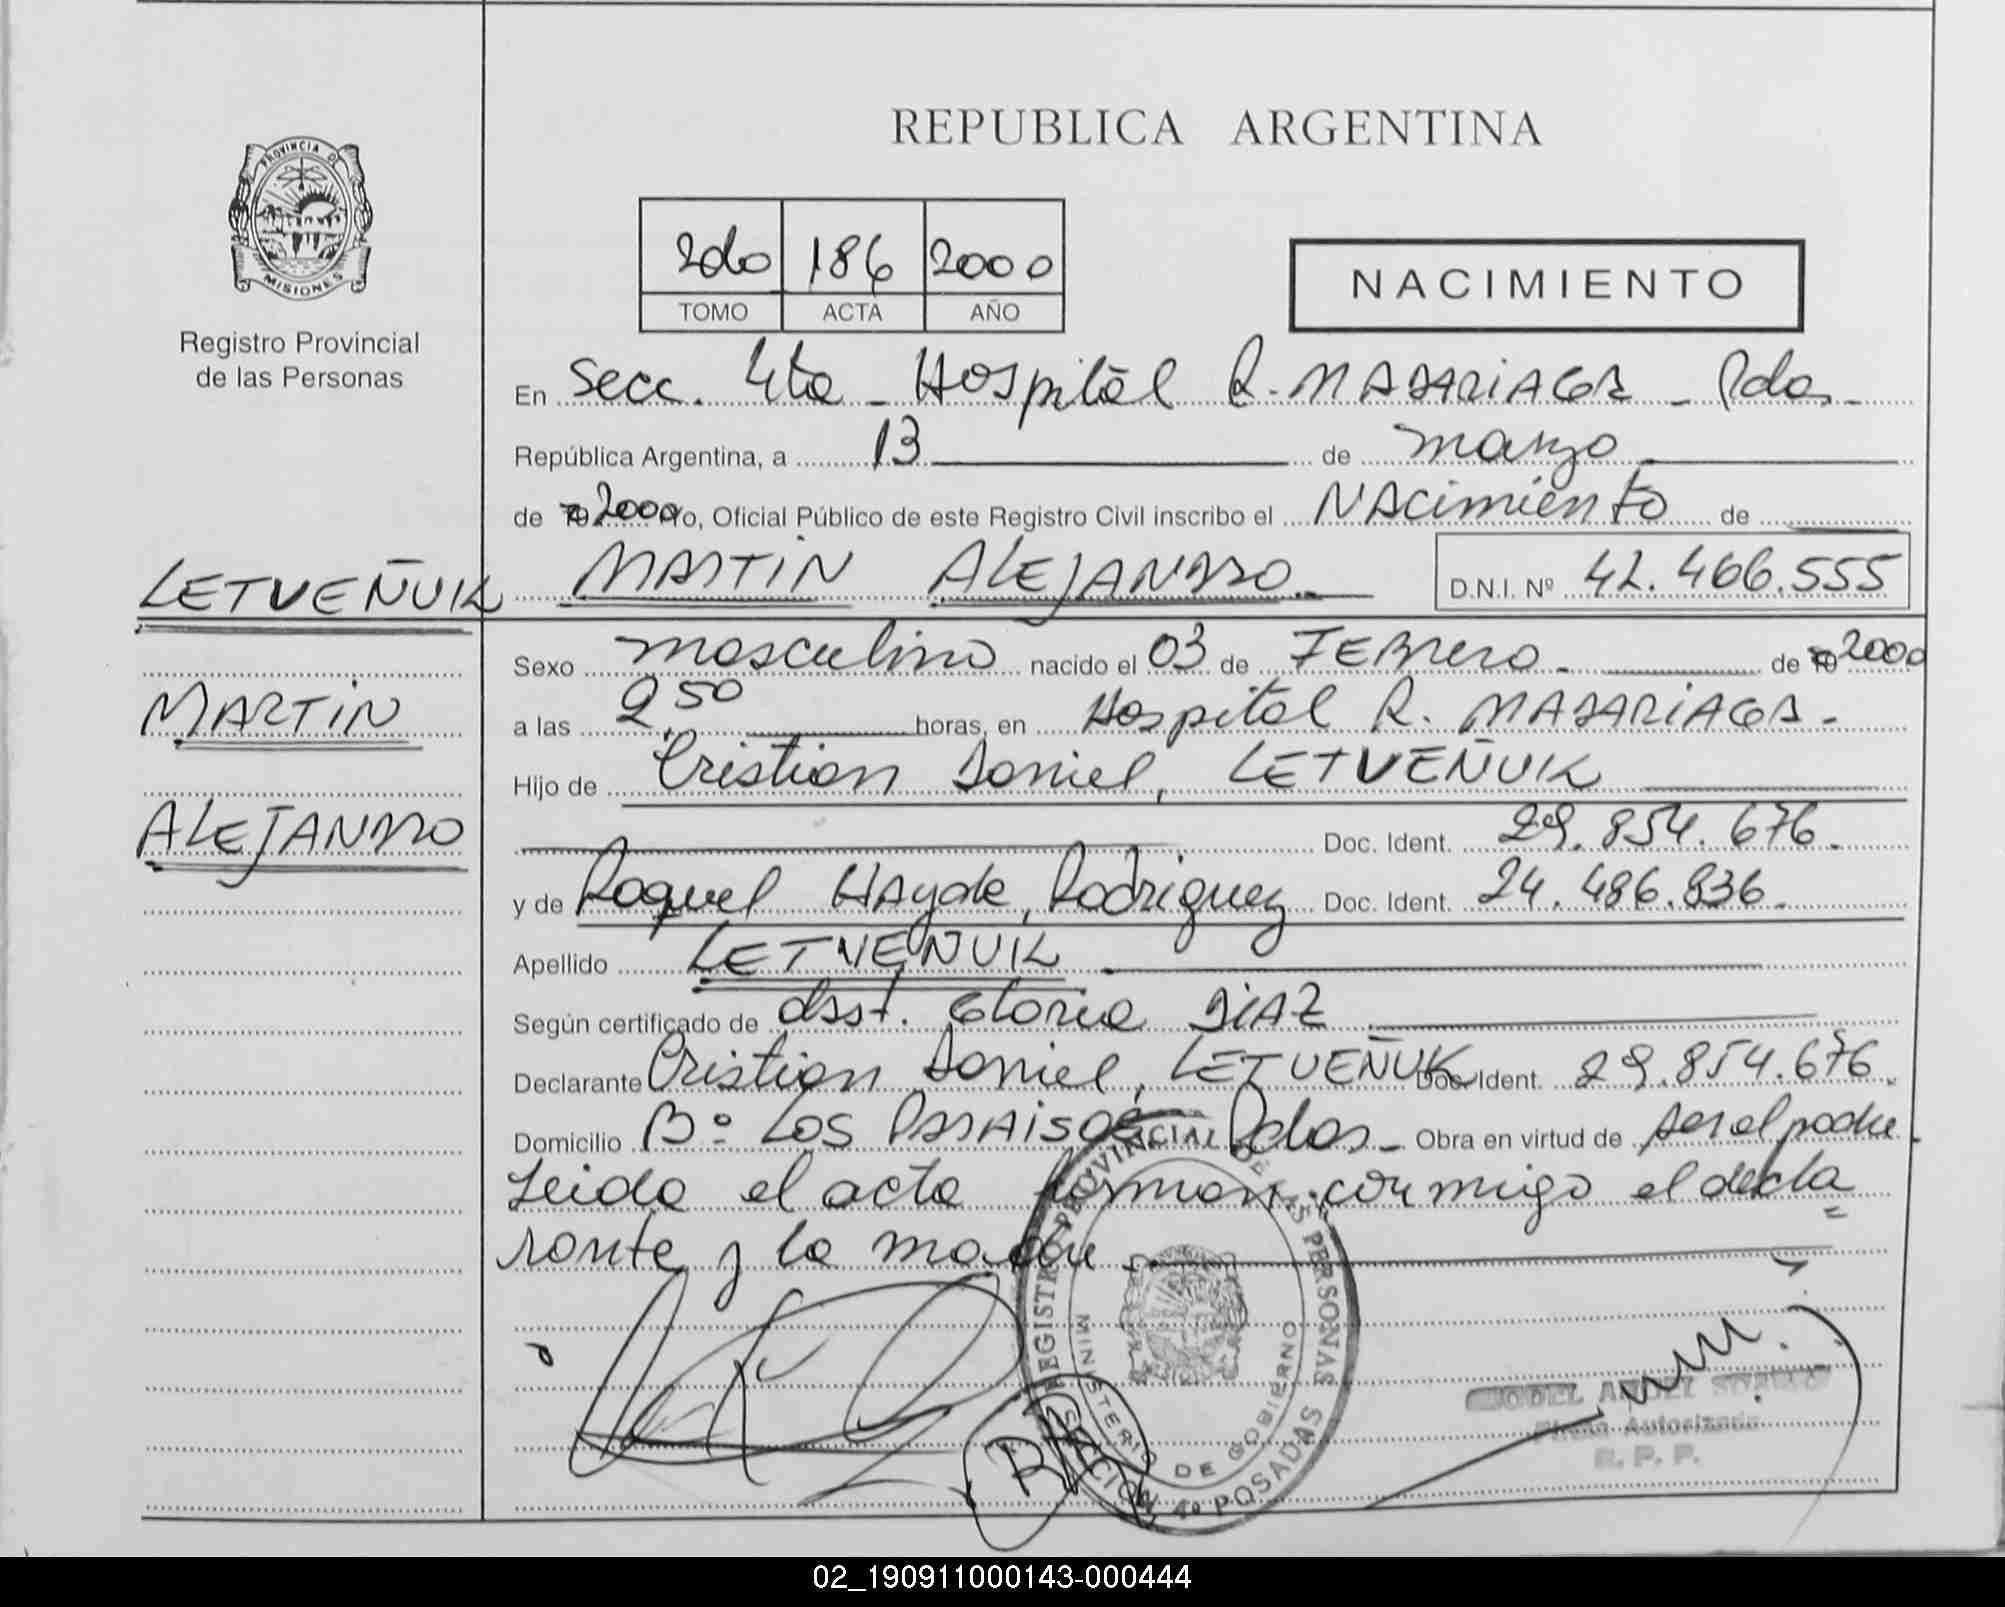 REPUBLICA ARGENTINA
PROVINCIA D
MISIONES
Registro Provincial
de las Personas
2do 186 2000
TOMO ACTA AÑO
NACIMIENTO
En Secc. 4ta - Hospital R. MADARIAGA - Pdas -
República Argentina, a 13 de marzo
de 2000 yo, Oficial Público de este Registro Civil inscribo el NAcimiento de
LETVEÑUK MARTIN ALEJANDRO. D.N.I. Nº 42.466.555
Sexo masculino nacido el 03 de FEBrero. de 2000
MARTIN
a las 2,50 horas, en Hospital R. MADARIAGA.
Hijo de Cristian Daniel, LETVEÑUK
ALEJANDRO
Doc. Ident. 29.854.676.
y de Raquel HAyde, Rodriguez Doc. Ident. 24.486.836.
Apellido LETVEÑUK
Según certificado de obst. Gloria DIAZ
Declarante Cristian Daniel, LETVEÑUK Doc. Ident. 29.854.676.
Domicilio Bº LOS PARAISOS Pdas - Obra en virtud de ser el padre.
Leida el acta firman conmigo el decla=
rante y la madre.
REGISTRO PROVINCIAL DE LAS PERSONAS
MINISTERIO DE GOBIERNO
SECCION 4º POSADAS
Firma Autorizada
R. P. P.
02_190911000143-000444